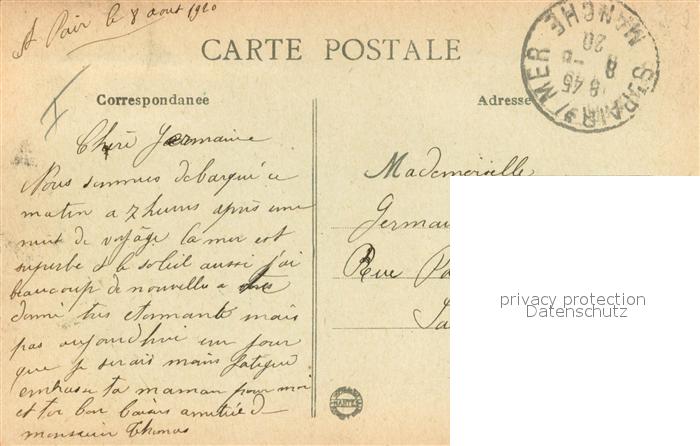 St Pair le 8 aout 1920
CARTE POSTALE
Correspondance
Adresse
ST PAIR S/ MER
18 45
8 - 8
20
MANCHE
Cheré Germaine
Nous sommes debarqué ce
matin a 7 heures après une
nuit de voyage la mer est
superbe et le soleil aussi j'ai
beaucoup de nouvelles a
donné tres etonnante mais
pas aujourd'hui un jour
que je serais moins fatigué
embrasse ta maman pour moi
et toi bon amitié d
monsieur Thomas
Mademoiselle
Germai
Rue
privacy protection
Datenschutz
NANTES